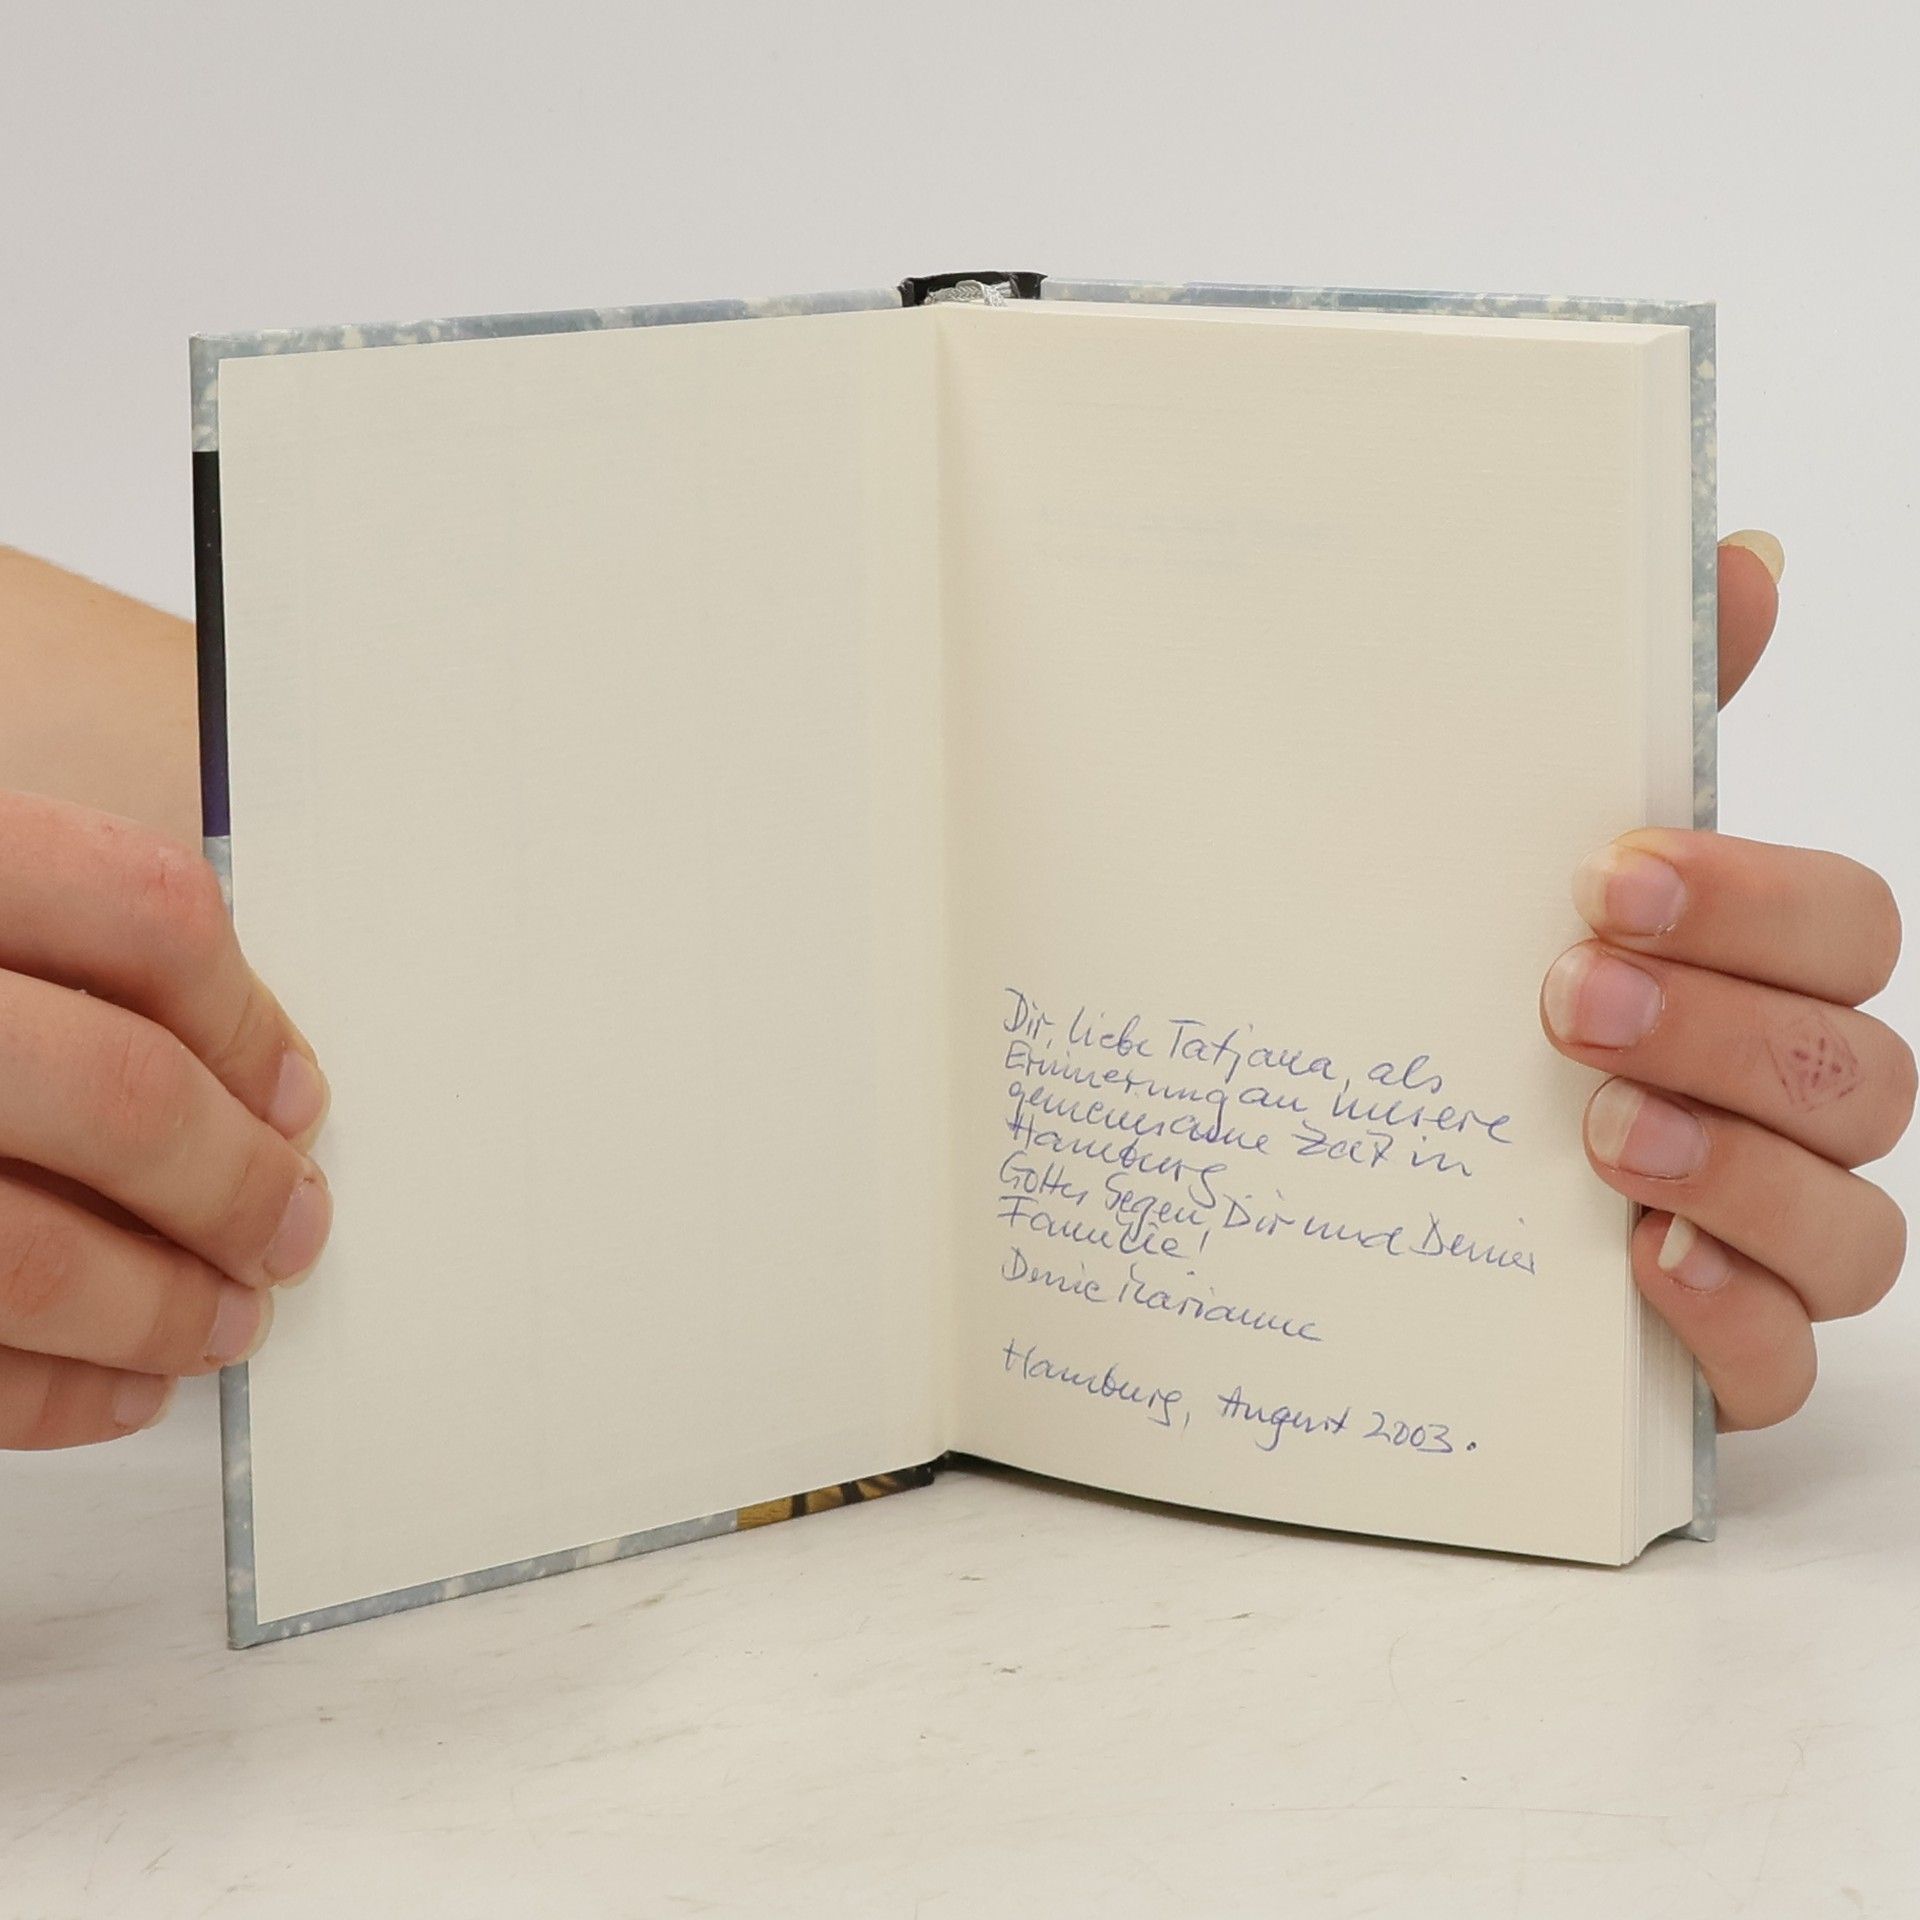 Dir, liebe Tatjana, als
Erinnerung an unsere
gemeinsame Zeit in
Hamburg
Gottes Segen, Dir und Deiner
Familie!
Deine Marianne
Hamburg, August 2003.